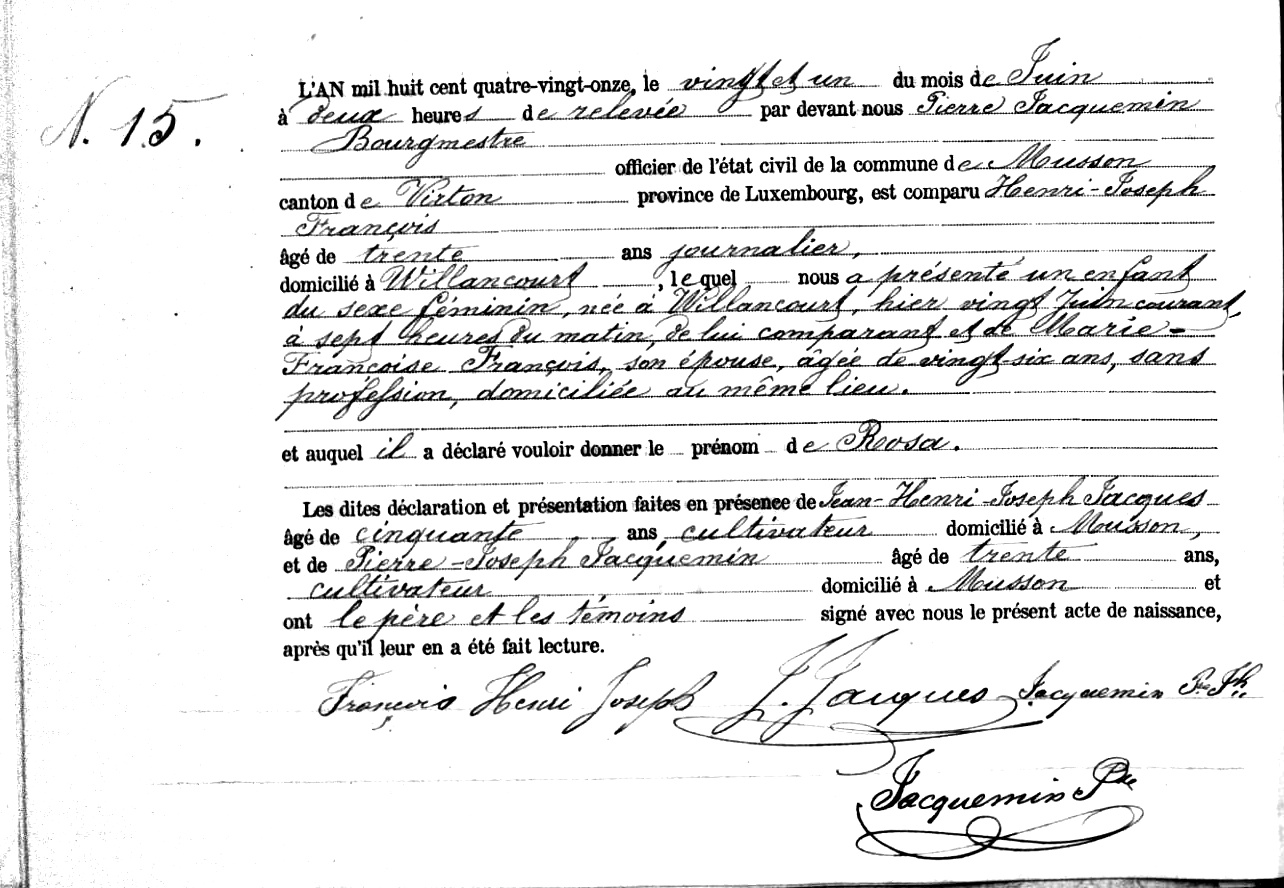 N. 15.
L'AN mil huit cent quatre-vingt-onze, le vingt et un du mois de Juin
à deux heures de relevée par devant nous Pierre Jacquemin
Bourgmestre
officier de l'état civil de la commune de Musson
canton de Virton province de Luxembourg, est comparu Henri-Joseph
François
âgé de trente ans journalier,
domicilié à Willancourt, lequel nous a présenté un enfant
du sexe féminin, née à Willancourt, hier vingt Juin courant,
à sept heures du matin, de lui comparant et de Marie-
Françoise François, son épouse, âgée de vingt six ans, sans
profession, domiciliée au même lieu.
et auquel il a déclaré vouloir donner le prénom de Rosa.
Les dites déclaration et présentation faites en présence de Jean-Henri-Joseph Jacques
âgé de cinquante ans, cultivateur domicilié à Musson,
et de Pierre-Joseph Jacquemin âgé de trente ans,
cultivateur domicilié à Musson et
ont le père et les témoins signé avec nous le présent acte de naissance,
après qu'il leur en a été fait lecture.
François Henri Joseph J. Jacques Jacquemin Pre Jh
Jacquemin Pre